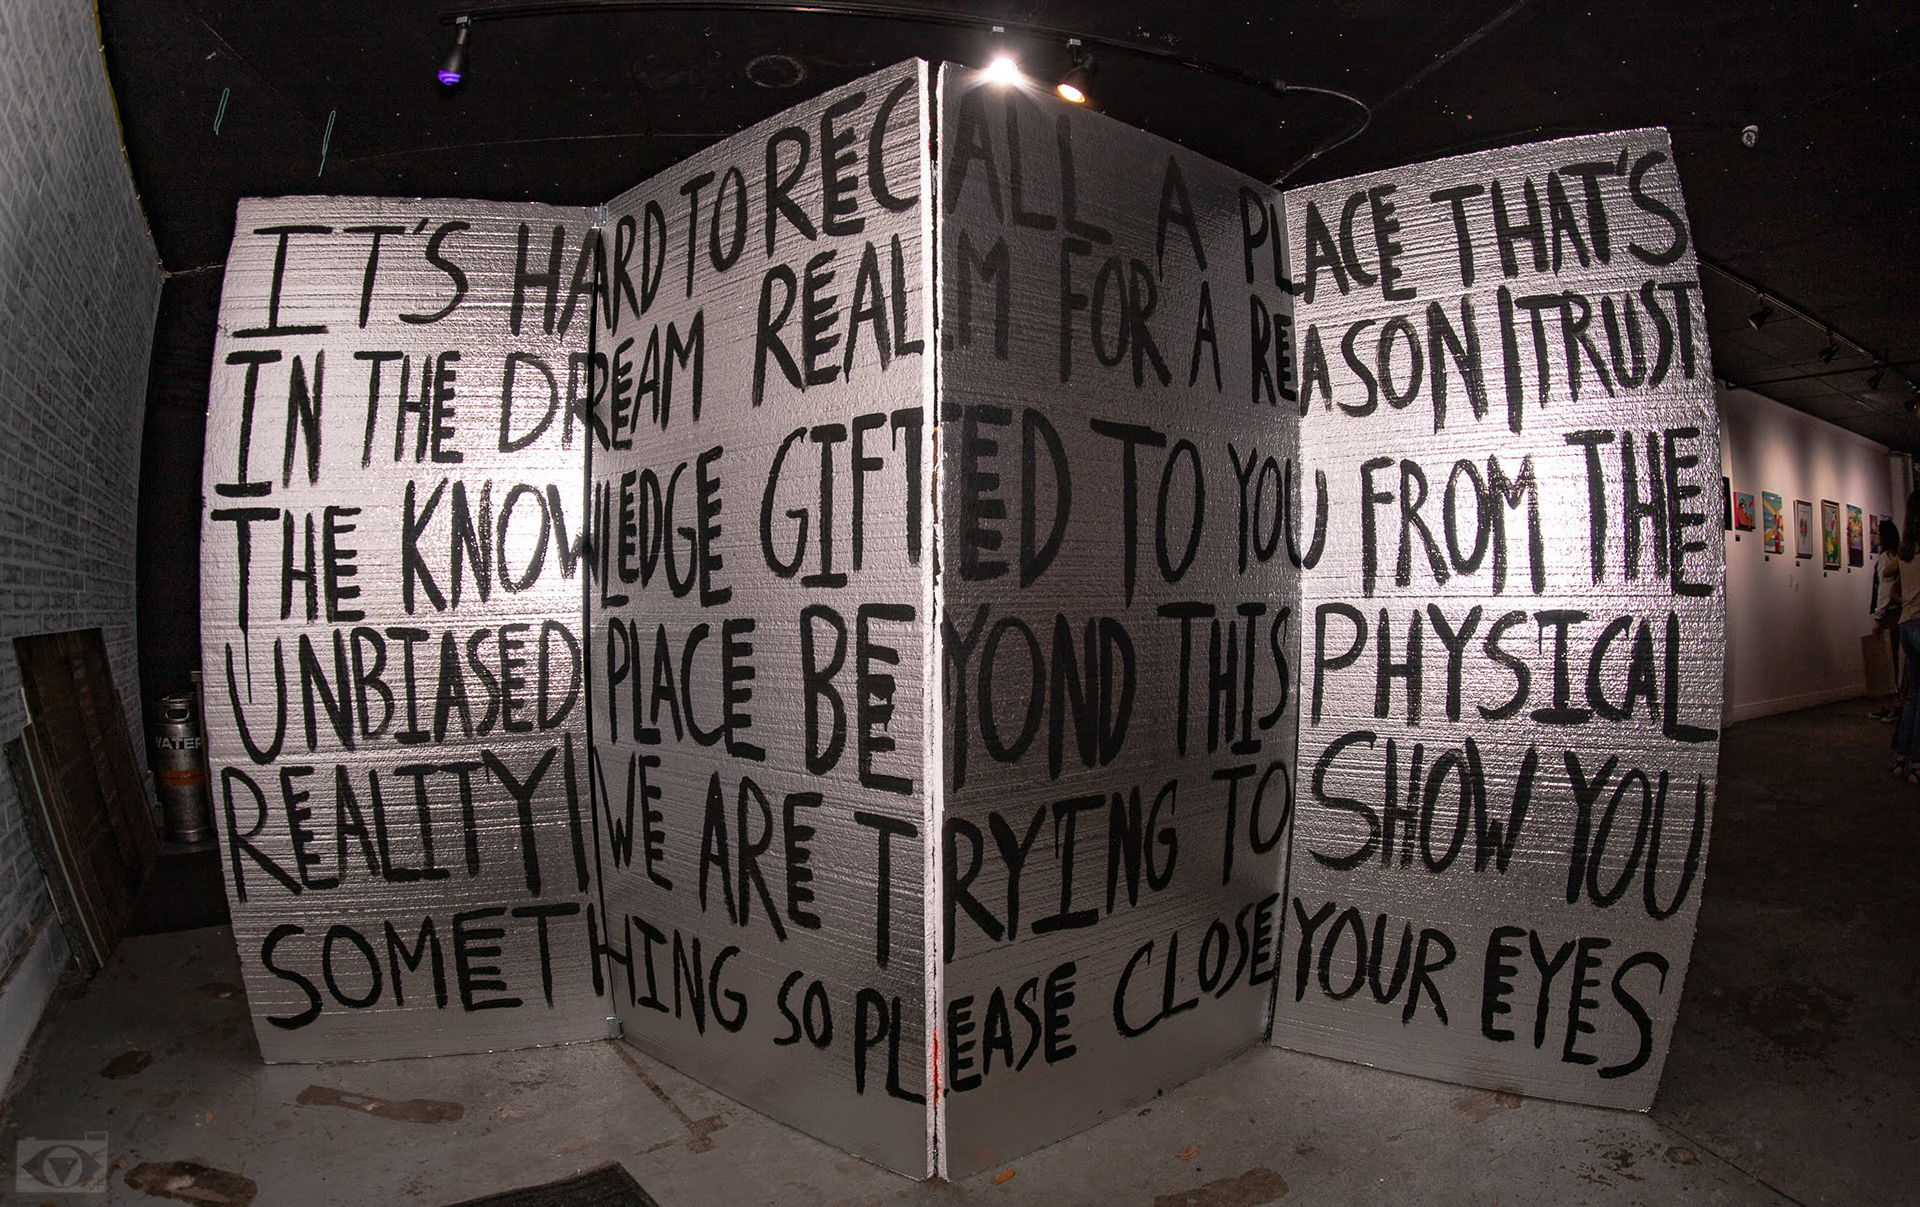 IT'S HARD TO RECALL A PLACE THAT'S
IN THE DREAM REALM FOR A REASON | TRUST
THE KNOWLEDGE GIFTED TO YOU FROM THE
UNBIASED PLACE BEYOND THIS PHYSICAL
REALITY | WE ARE TRYING TO SHOW YOU
SOMETHING SO PLEASE CLOSE YOUR EYES
WATER